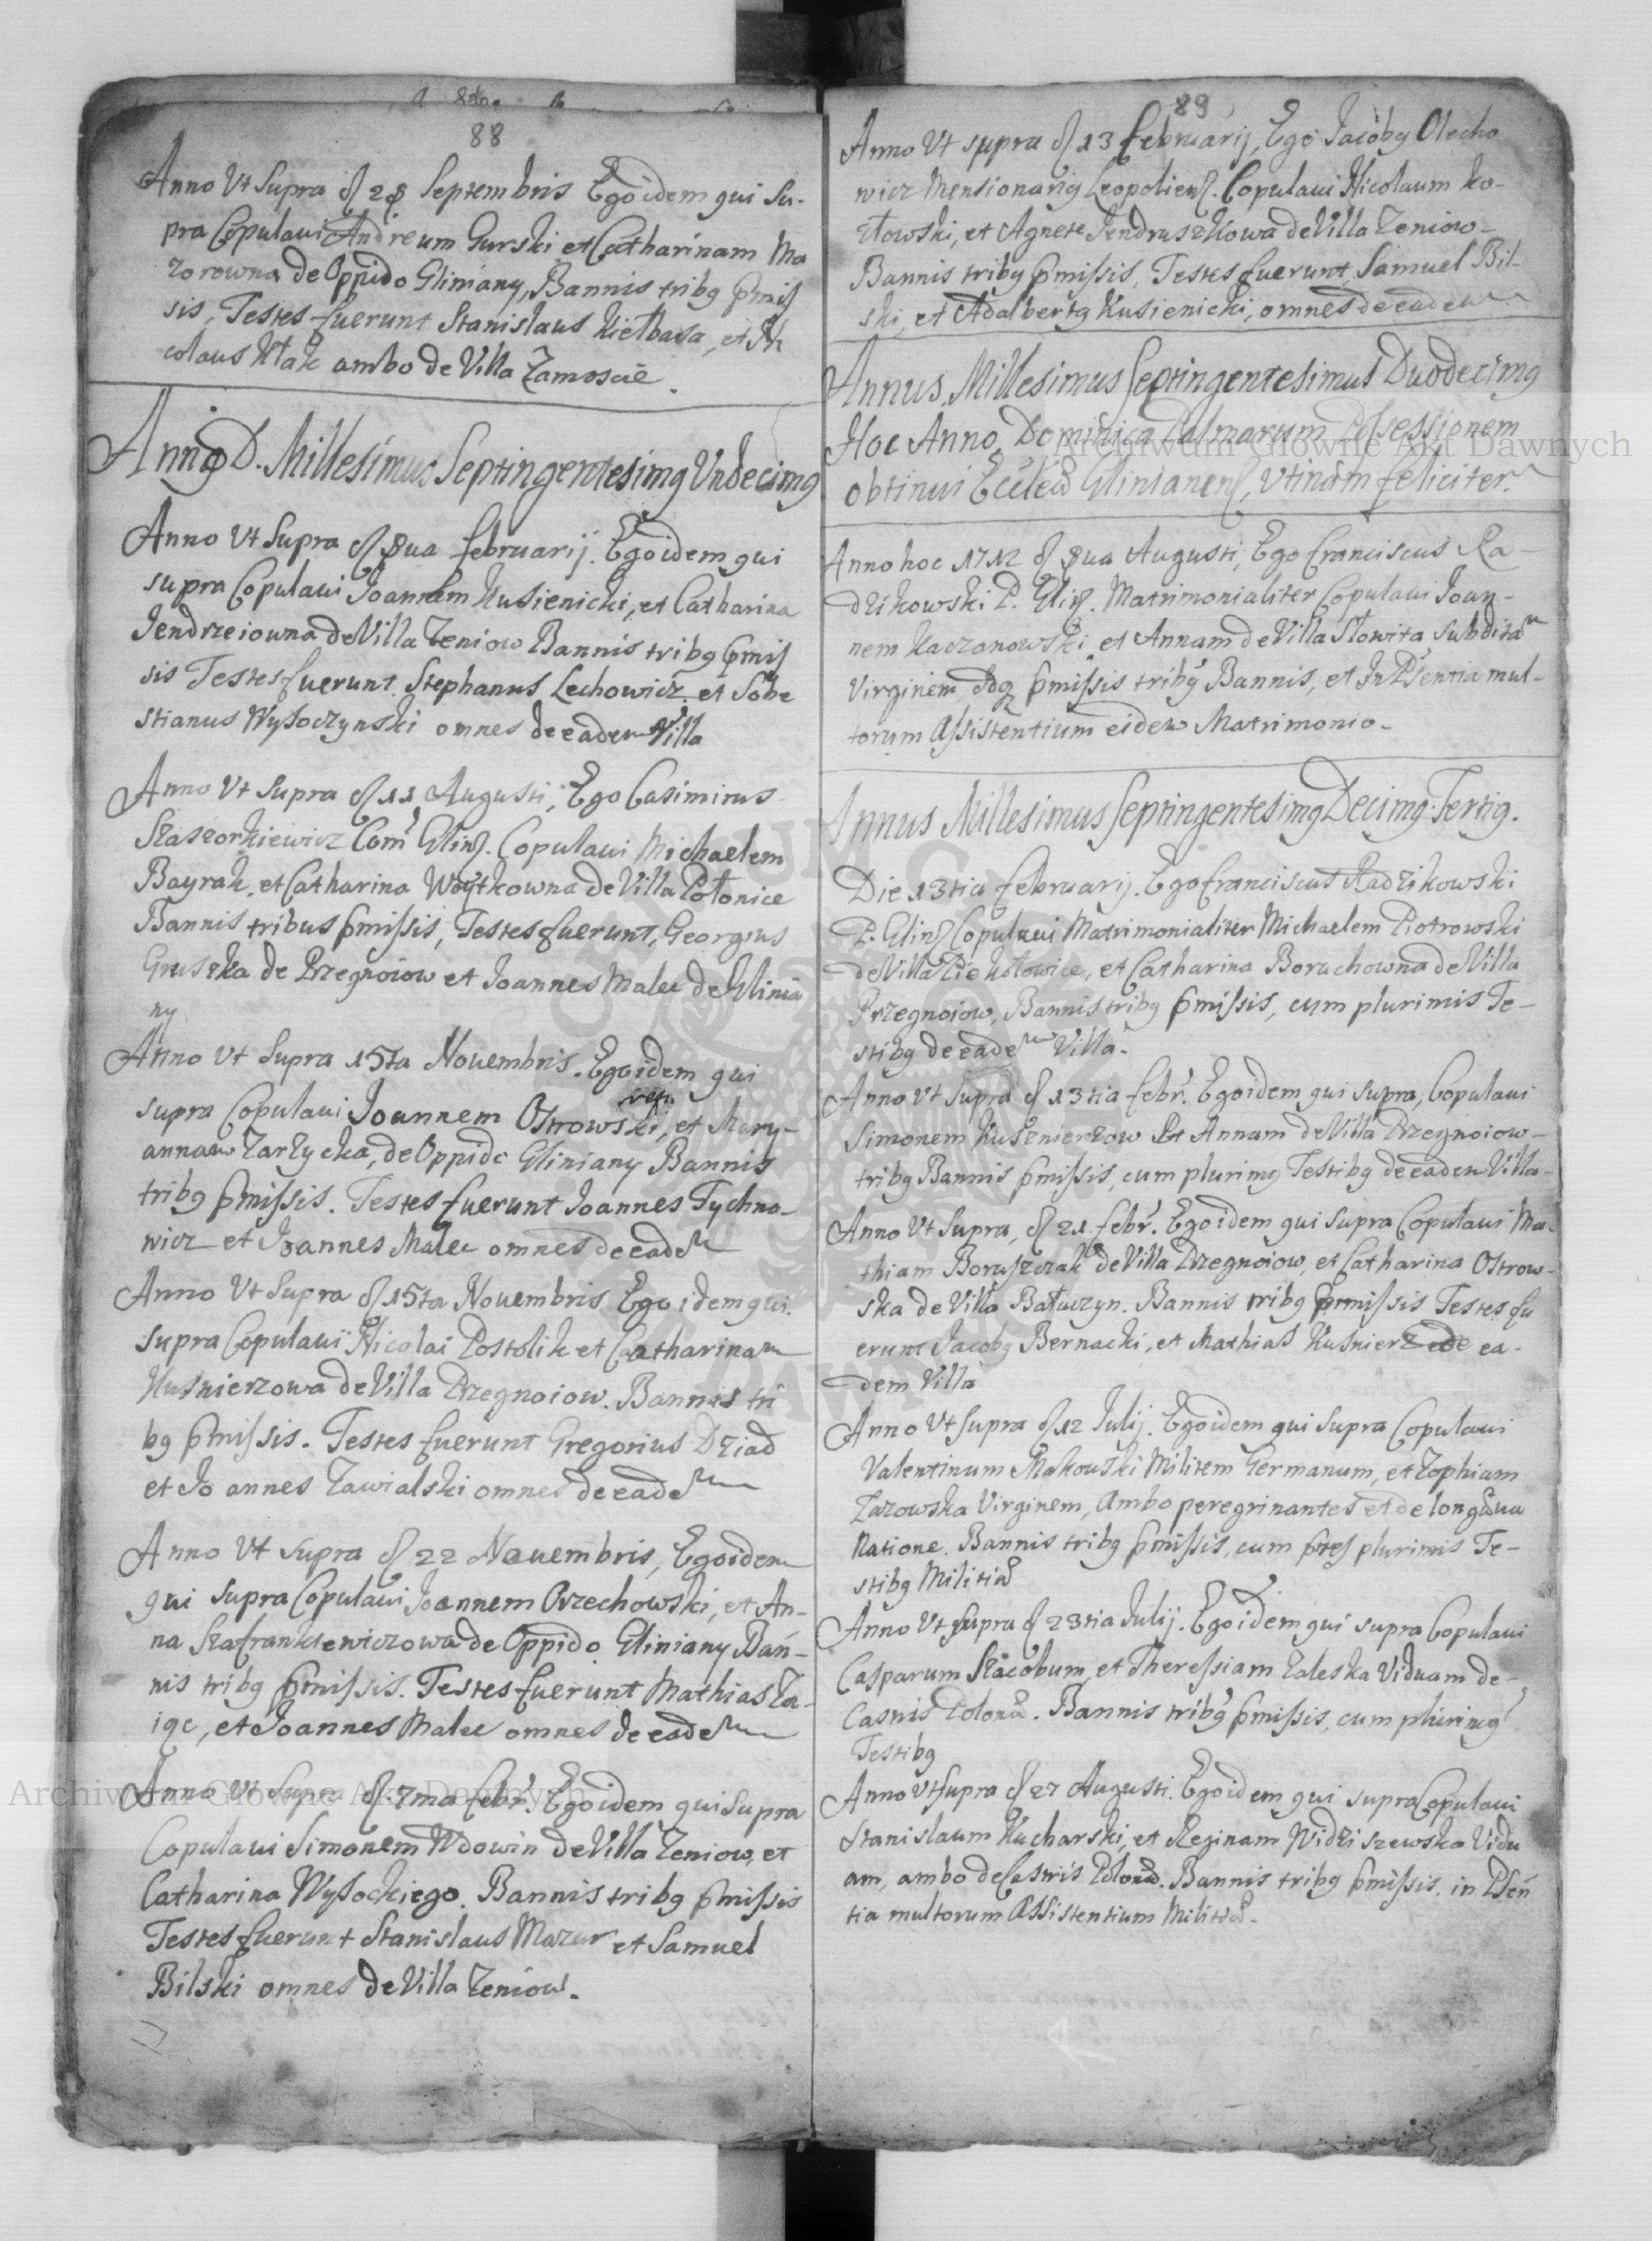 88
Anno Vt Supra d 28 Septembris Ego idem qui Su-
pra Copulaui Andreum Gurski et Catharinam Ma
zorowna de Oppido Gliniany, Bannis tribg pmis
sis, Testes fuerunt Stanislaus Kiełbasa, et Ni
colaus Ktak ambo de Villa Zamoście.
Anng D. Millesimus Septingentesimg Vndecimg
Anno Vt Supra d 8ua februarij. Ego idem qui
supra Copulaui Joannem Kusienicki, et Catharina
Jendrzeiowna de Villa Zeniow Bannis tribg pmis
sis Testes fuerunt Stephanus Lechowicz et Sobe
stianus Wysoczynski omnes de eadem Villa
Anno Vt Supra d 11 Augusti, Ego Casimirus
Staseorkiewicz Com Glin. Copulaui Michaelem
Bayrak, et Catharina Woytkowna de Villa Połonice
Bannis tribus pmissis, Testes fuerunt, Georgius
Gruszka de Przegnoiow et Joannes Malec de Glinia
ny
Anno Vt Supra 15ta Nouembris. Ego idem qui
supra Copulaui Joannem Ostrowski, et Mary-
annam Zarzycka, de Oppido Gliniany Bannis
tribg pmissis. Testes fuerunt Joannes Tychno-
wicz et Joannes Malec omnes de eadem
Anno Vt Supra d 15ta Nouembris Ego idem qui
supra Copulaui Nicolai Postolik et Catharinam
Kusnierzowa de Villa Przegnoiow. Bannis tri
bg pmissis. Testes fuerunt Gregorius Dziad
et Jo annes Zawialski omnes de eadem
Anno Vt Supra d 22 Nouembris, Ego idem
qui supra Copulaui Joannem Orzechowski, et An-
na Szafrankiewiczowa de Oppido Gliniany Ban-
nis tribg pmissis. Testes fuerunt Mathias Za-
iąc, et Joannes Malec omnes de eadem
Anno Vt Supra d 7ma febr. Ego idem qui supra
Copulaui Simonem Wdowin de Villa Zeniow, et
Catharina Wysockiego. Bannis tribg pmissis
Testes fuerunt Stanislaus Mazur et Samuel
Bilski omnes de Villa Zeniow.
89
Anno Vt supra d 13 februarij, Ego Jacobg Olecho
wicz Mensionarig Leopoliens. Copulaui Nicolaum Ko-
złowski, et Agnete Jendruszkowa de Villa Zeniow-
Bannis tribg pmissis, Testes fuerunt Samuel Bil-
ski, et Adalbertg Kusienicki, omnes de eadem
Annus Millesimus Septingentesimus Duodecimg
Hoc Anno, Dominica Palmarum Possessionem
obtinui Eccleae Glinianens, Vtinam feliciter.
Anno hoc 1712 d 8ua Augusti, Ego Franciscus Ra-
dzikowski P. Glin. Matrimonialiter Copulaui Joan-
nem Kaczanowski et Annam de Villa Słowita Subditam
Virginem, pmissis tribg Bannis, et In Psentia mul-
torum Assistentium eidem Matrimonio-
Annus Millesimus Septingentesimg Decimg Tertig.
Die 13tia februarij. Ego franciscus Radzikowski
P. Glin Copulaui Matrimonialiter Michaelem Piotrowski
de Villa Piekułowice, et Catharina Boruchowna de Villa
Przegnoiow, Bannis tribg pmissis, cum plurimis Te-
stibg de eadem Villa.
Anno Vt Supra d 13tia febr. Ego idem qui supra, Copulaui
Simonem Kusznierzow Et Annam de Villa Przegnoiow-
tribg Bannis pmissis, cum plurimg Testibg de eadem Villa-
Anno Vt Supra, d 21 febr. Ego idem qui supra Copulaui Ma
thiam Boruszczak de Villa Przegnoiow, et Catharina Ostrow-
ska de Villa Bałuczyn. Bannis tribg pmissis Testes fu
erunt Jacobg Bernacki, et Mathias Kusnierz de ea-
dem Villa
Anno Vt supra d 12 Julij. Ego idem qui supra Copulaui
Valentinum Makowski Militem Germanum, et Zophiam
Zazowska Virginem, Ambo peregrinantes et de longqua
Natione. Bannis tribg pmissis, cum plurimis Te-
stibg Militiae
Anno Vt supra d 23tia Julij. Ego idem qui supra Copulaui
Casparum Szacobum, et Theressiam Zaleska Viduam de
Castris Polona. Bannis tribg pmissis, cum plurimg
Testibg
Anno Vt supra d 27 Augusti. Ego idem qui supra Copulaui
Stanislaum Kucharski, et Reginam Widziszewska Vidu
am, ambo de Castris Polona. Bannis tribg pmissis, in Psen
tia multorum Assistentium Militiae.
Archiwum Główne Akt Dawnych
Archiwum Główne Akt Dawnych